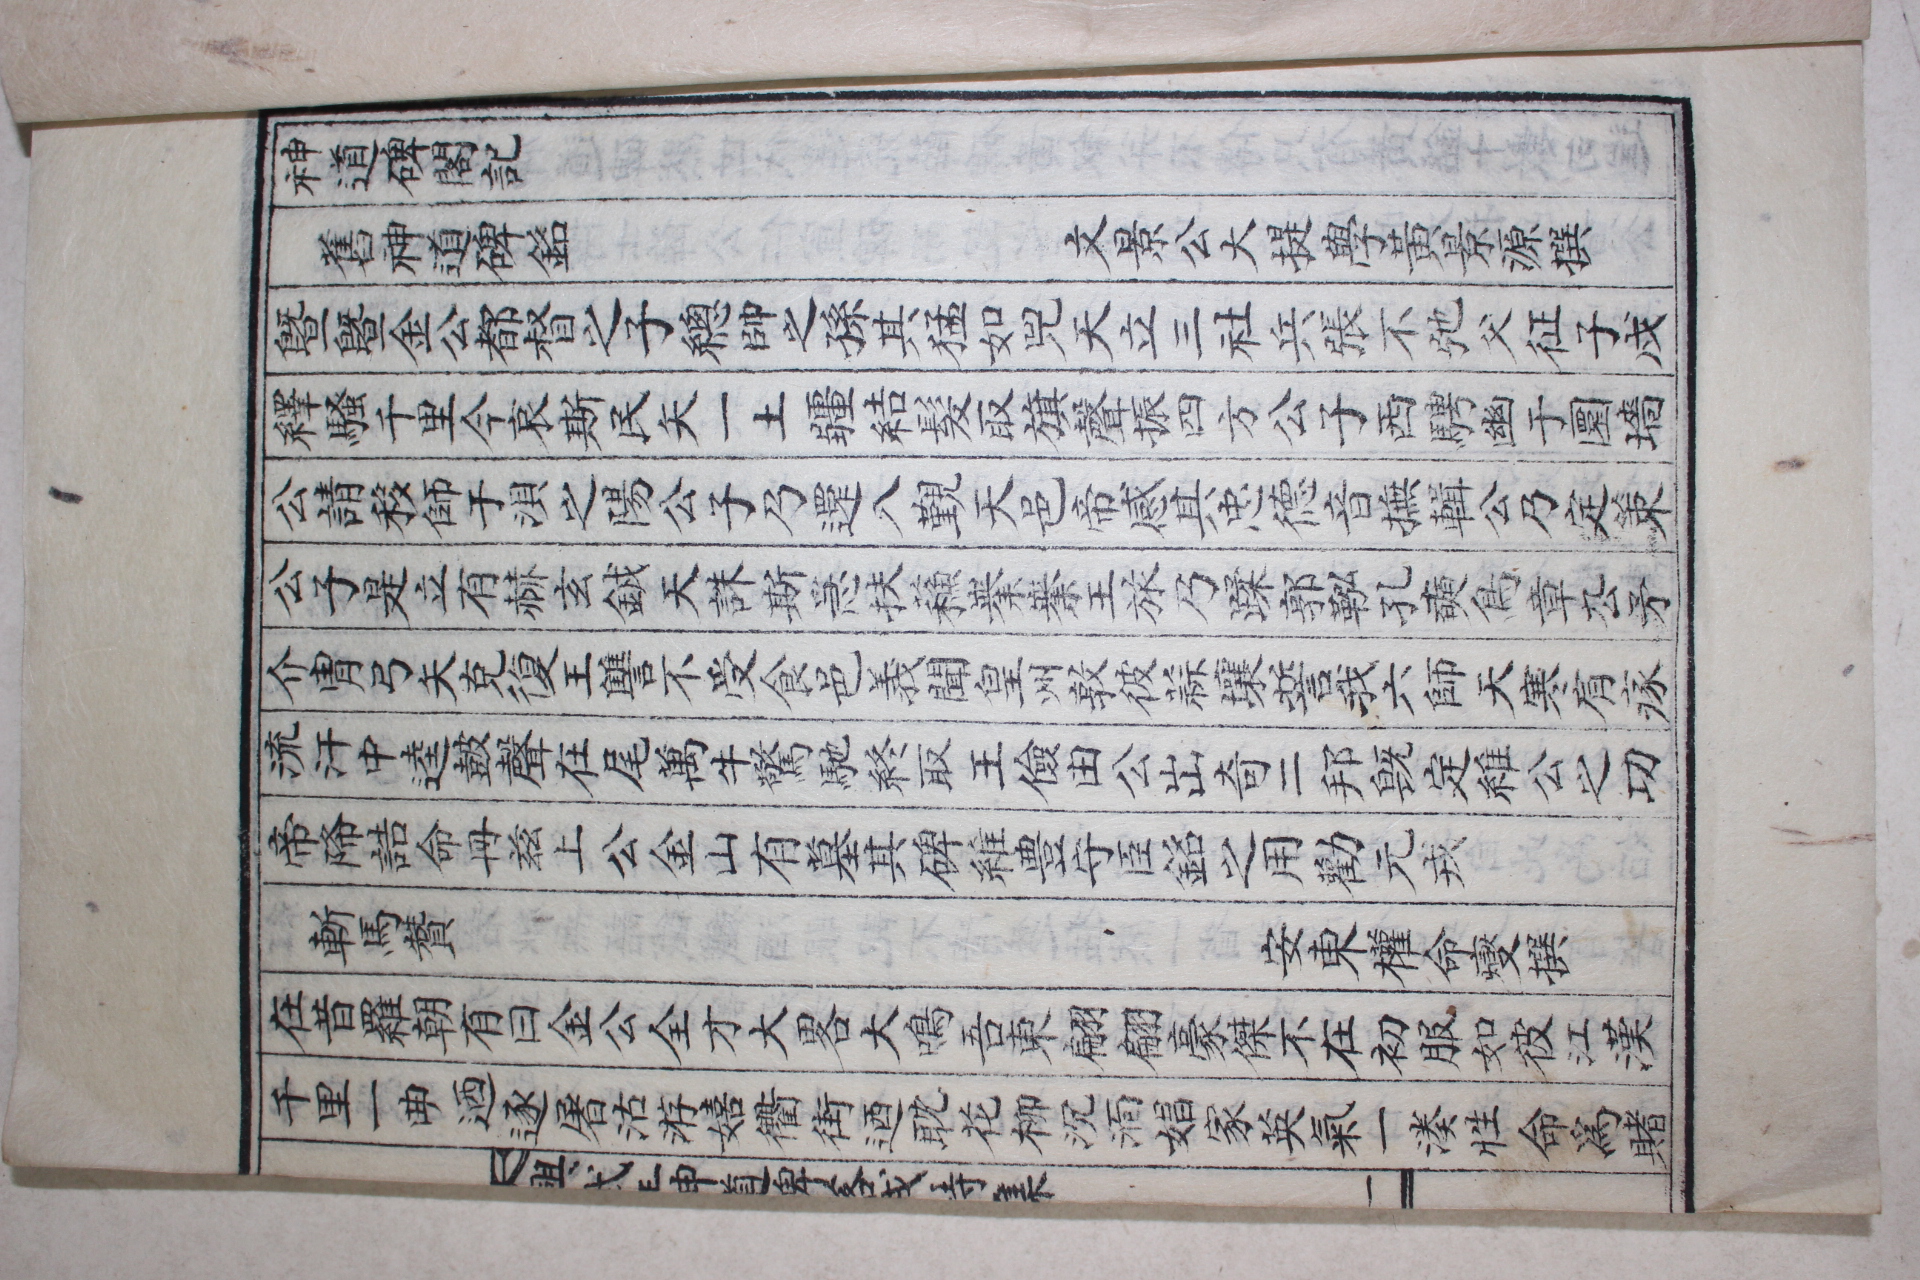 神道碑閣記
舊神道碑銘 文景公大提學黃景源撰
曁曁金公都督之子總帥之孫其猛如兕天立三社兵張不弛父征子戍
繹騷千里今哀斯民矢一土疆結髮取旗聲振四方公子西騁幽于圜墻
公請移師于浿之陽公子乃還入覲天邑帝感其忠德音撫輯公乃定策
公子是立有赫玄鉞天誅斯急扶蘓桀桀王旅乃蹂郭鞃孔奭鳥章厹矛
介冑弓矢克復王讐不受食邑義聞皇州敦彼蒜壤誓我六師天寒有瘃
流汗中逵鼓聲在尾萬牛驚馳終取王儉由公出奇二邦旣定維公之功
帝降誥命冊玆上公金山有墓其碑維豊守臣銘之用勸元戎
斬馬贊 安東權命燮撰
在昔羅朝有曰金公全才大畧大鳴吾東翩翩豪傑不在初服如彼江漢
千里一曲迺逐屠沽游嬉衢街迺耽花柳沉湎娼家英氣一湊性命爲賭
興武王神道碑落成詩集
二